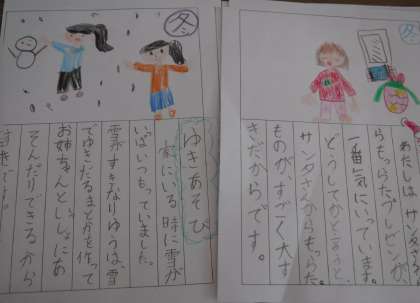 冬
ゆきあそび
家にいる時に雪が
いぱいつもっていました。
雪がすきなりゆうは、雪
でゆきだるまとかを作って
お姉ちゃんといっしょにあ
そんだりできるから
好きです。
冬
あたしはサンタさんか
らもらったプレゼントが、
一番気にいっています。
どうしてかと言うと、
サンタさんからもらった
ものが、すごく大す
きだからです。